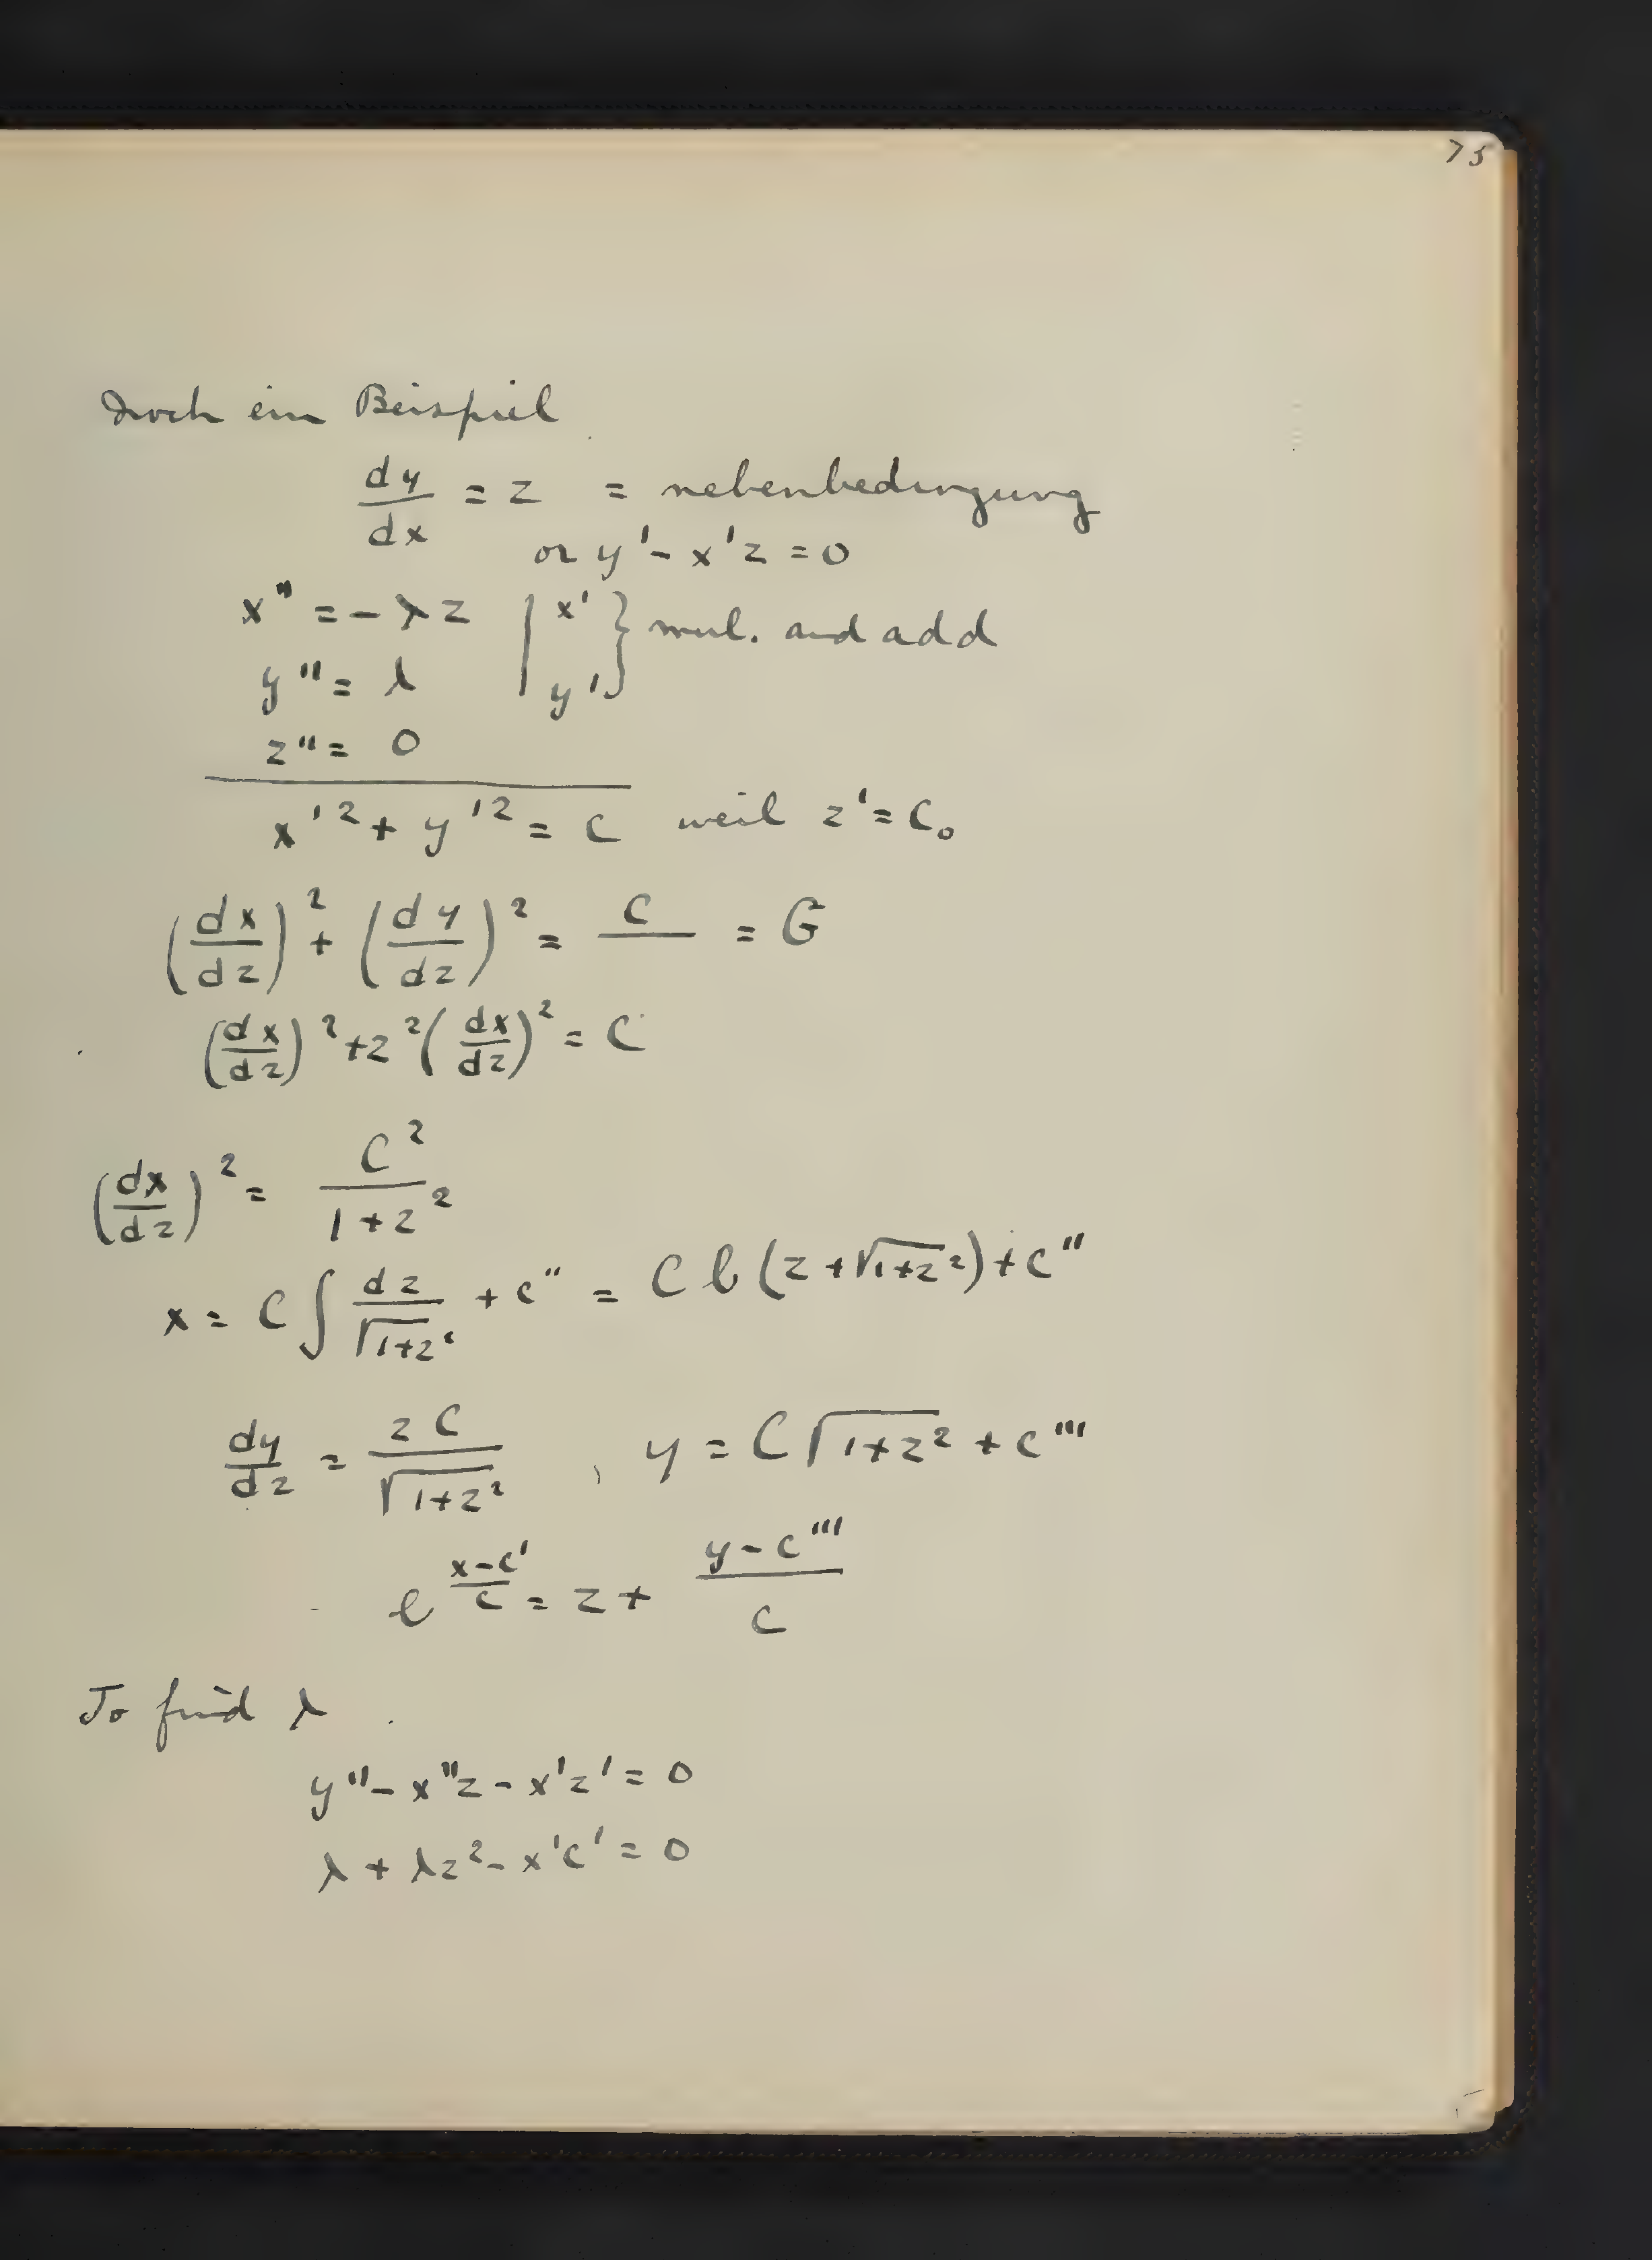 75
Noch ein Beispiel
dy/dx = z = nebenbedingung
or y' - x'z = 0
x'' = -λz | x' } mul. and add
y'' = λ | y' }
z'' = 0
x'² + y'² = C weil z' = C₀
(dx/dz)² + (dy/dz)² = C/ = G
(dx/dz)² + z²(dx/dz)² = C
(dx/dz)² = C²/1+z²
x = C∫ dz/√1+z² + c'' = C l(z + √1+z²) + c''
dy/dz = zC/√1+z² , y = C√1+z² + c'''
e^(x-c'/c) = z + y-c'''/C
To find λ
y'' - x''z - x'z' = 0
λ + λz² - x'c' = 0